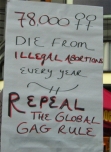 78000 ♀♀
DIE FROM
ILLEGAL ABORTIONS
EVERY YEAR
REPEAL
THE GLOBAL
GAG RULE